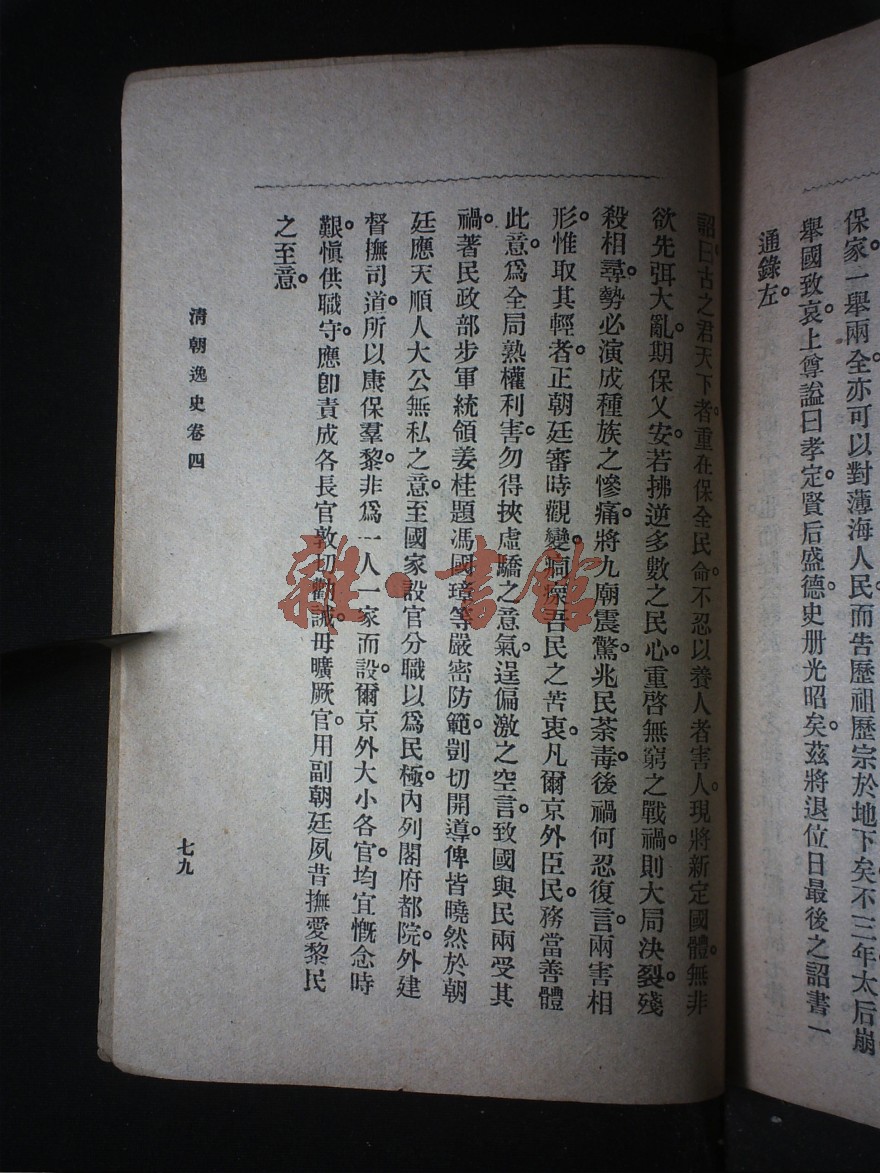 保家。一舉兩全。亦可以對薄海人民。而告歷祖歷宗於地下矣。不三年太后崩。
舉國致哀。上尊謚曰孝定賢后。盛德史册光昭矣。茲將退位日最後之詔書一
通錄左。
詔曰。古之君天下者。重在保全民命。不忍以養人者害人。現將新定國體。無非
欲先弭大亂。期保乂安。若拂逆多數之民心。重啓無窮之戰禍。則大局決裂。殘
殺相尋。勢必演成種族之慘痛。將九廟震驚。兆民荼毒。後禍何忍復言。兩害相
形。惟取其輕者。正朝廷審時觀變。痌瘝吾民之苦衷。凡爾京外臣民。務當善體
此意。爲全局熟權利害。勿得挾虛驕之意氣。逞偏激之空言。致國與民兩受其
禍。著民政部步軍統領姜桂題馮國璋等嚴密防範。剴切開導。俾皆曉然於朝
廷應天順人大公無私之意。至國家設官分職以爲民極。內列閣府都院。外建
督撫司道。所以康保羣黎。非爲一人一家而設。爾京外大小各官。均宜慨念時
艱。愼供職守。應卽責成各長官敦切勸誡。毋曠厥官。用副朝廷夙昔撫愛黎民
之至意。
清朝逸史卷四
七九
雜·書館